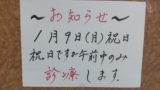 〜お知らせ〜
1月9日(月)祝日
祝日ですが午前中のみ
診療します。